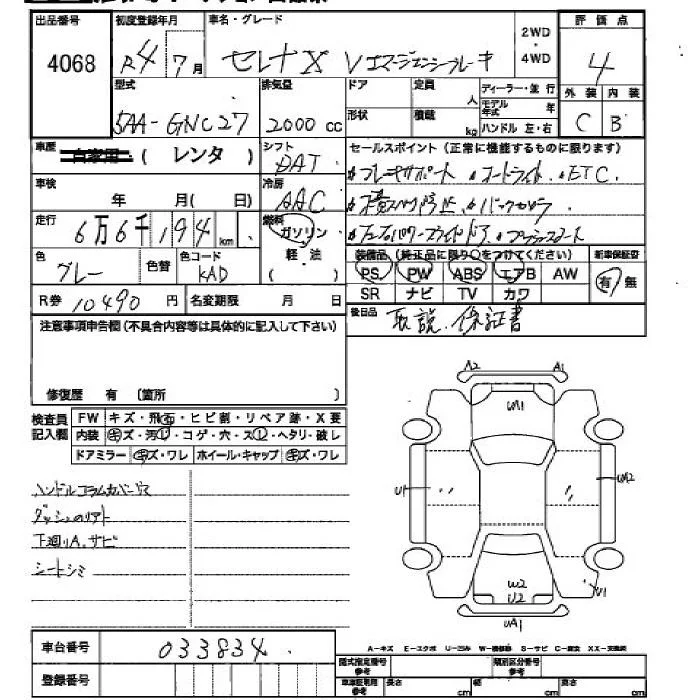 出品番号 初度登録年月 車名・グレード 評価点
4068 R4年 7月 セレナ X Vエマージェンシーブレーキ 2WD・4WD 4
型式 排気量 ドア 定員 人 ディーラー・並行 外装 内装
5AA-GNC27 2000 cc 形状 積載 kg モデル年式 年 ハンドル 左・右 C B
車歴 自家用 (レンタ) シフト DAT セールスポイント(正常に機能するものに限ります)
車検 年 月(日) 冷房 AAC ブレーキサポート オートライト ETC
走行 6万6千194km 燃料 ガソリン 横スベリ防止 バックカメラ
色 グレー 色替 色コード KAD (軽油)
装備品(純正品に限り○をつけてください) 新車保証書
PS PW ABS エアB AW 有・無
SR ナビ TV カワ
R券 10490円 名変期限 月 日 後日品 取説、保証書
注意事項申告欄(不具合内容等は具体的に記入して下さい)
修復歴 有 〔箇所 〕
検査員記入欄 FW キズ・飛石・ヒビ割・リペア跡・X要
内装 キズ・汚レ・コゲ・穴・スレ・ヘタリ・破レ
ドアミラー キズ・ワレ ホイール・キャップ キズ・ワレ
ハンドルコラムカバー穴
ダッシュのリアト
下廻りA、サビ
シートシミ
A2 A1
UA1
U1
UA2
W2
U2
U1
UA1
車台番号 033834
登録番号
型式指定番号 参考 類別区分番号 参考
車庫証明用 参考 長さ cm 幅 cm 高さ cm